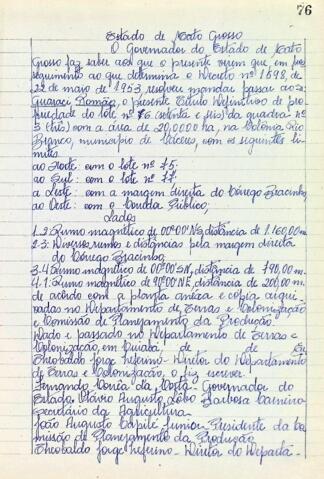 76
Estado de Mato Grosso
O Governador do Estado de Mato
Grosso faz saber aos que o presente virem que, em pros
seguimento ao que determina o Decreto nº 1698, de
22 de maio de 1953, resolveu mandar passar ao sr.
Guaraci Romão, o presente Título Definitivo de pro
priedade do lote nº 76 (setenta e seis) da quadra nº
3 (três) com a área de 20,0000 ha, na Colônia Rio
Branco, município de Cáceres, com os seguintes li-
mites.
ao Norte: com o lote nº 75;
ao Sul: com o lote nº 77;
a Leste: com a margem direita do Córrego Bracinho;
ao Oeste: com o Corredor Público;
Lados
1-2: Rumo magnético de 00º00' NS, distância de 1.160,00 m.
2-3: Diversos rumos e distâncias pela margem direita
do Córrego Bracinho;
3-4 Rumo magnético de 00º00' SN, distância de 790,00 m.
4-1: Rumo magnético de 90º00' NE, distância de 200,00 m.
de acordo com a planta anexa e cópia arqui-
vadas no Departamento de Terras e Colonização
e Comissão de Planejamento da Produção.
Dado e passado no Departamento de Terras e
Colonização, em Cuiabá, de de Eu
Theobaldo Jorge Neferino - Diretor do Departamento
de Terras e Colonização, o fiz escrever.
Fernando Corrêa da Costa - Governador do
Estado. Otávio Augusto Lôbo Barbosa Carneiro
Secretário da Agricultura.
João Augusto Capilé Junior - Presidente da Co
missão de Planejamento da Produção
Theobaldo Jorge Neferino - Diretor do Departa-